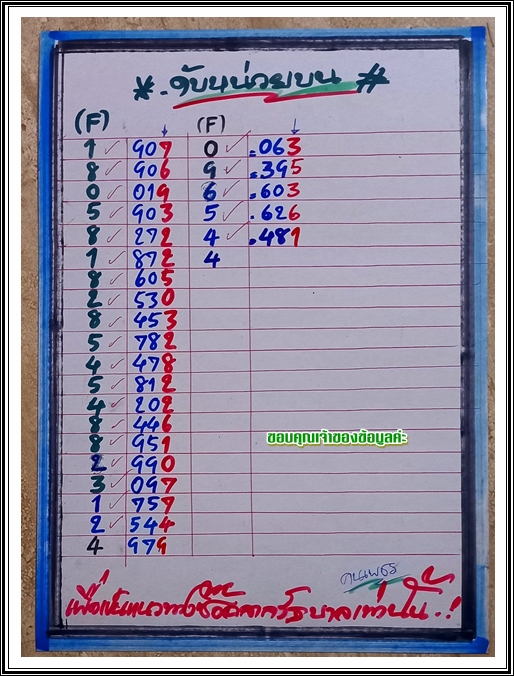 * .จับหน่วยบน #
(F) (F)
1 ✓ 907 0 ✓ =063
8 ✓ 906 9 ✓ =395
0 ✓ 019 6 ✓ =603
5 ✓ 903 5 ✓ .626
8 ✓ 272 4 ✓ .481
1 ✓ 872 4
8 ✓ 605
2 ✓ 530
8 ✓ 453
5 ✓ 782
4 ✓ 478
5 ✓ 812
4 ✓ 202
8 ✓ 446
8 ✓ 951
ขอบคุณเจ้าของข้อมูลค่ะ
2 ✓ 990
3 ✓ 097
1 ✓ 757
2 ✓ 544
4 979
คนเพชร
เพื่อเป็นแนวทางซื้อสลากรัฐบาลเท่านั้น.!